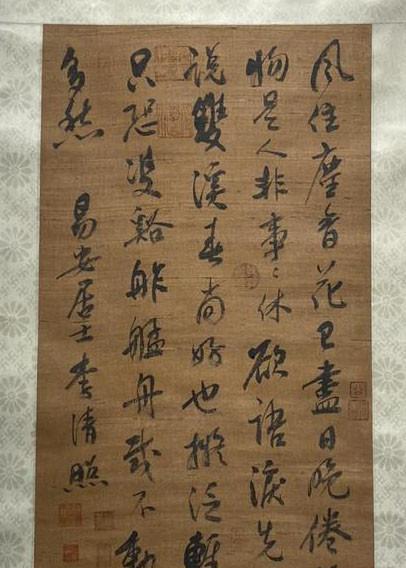 風住塵香花已盡日晚倦
物是人非事〻休欲語淚先
說雙溪春尚好也擬泛輕
只恐雙谿舴艋舟載不動
多愁
易安居士李清照